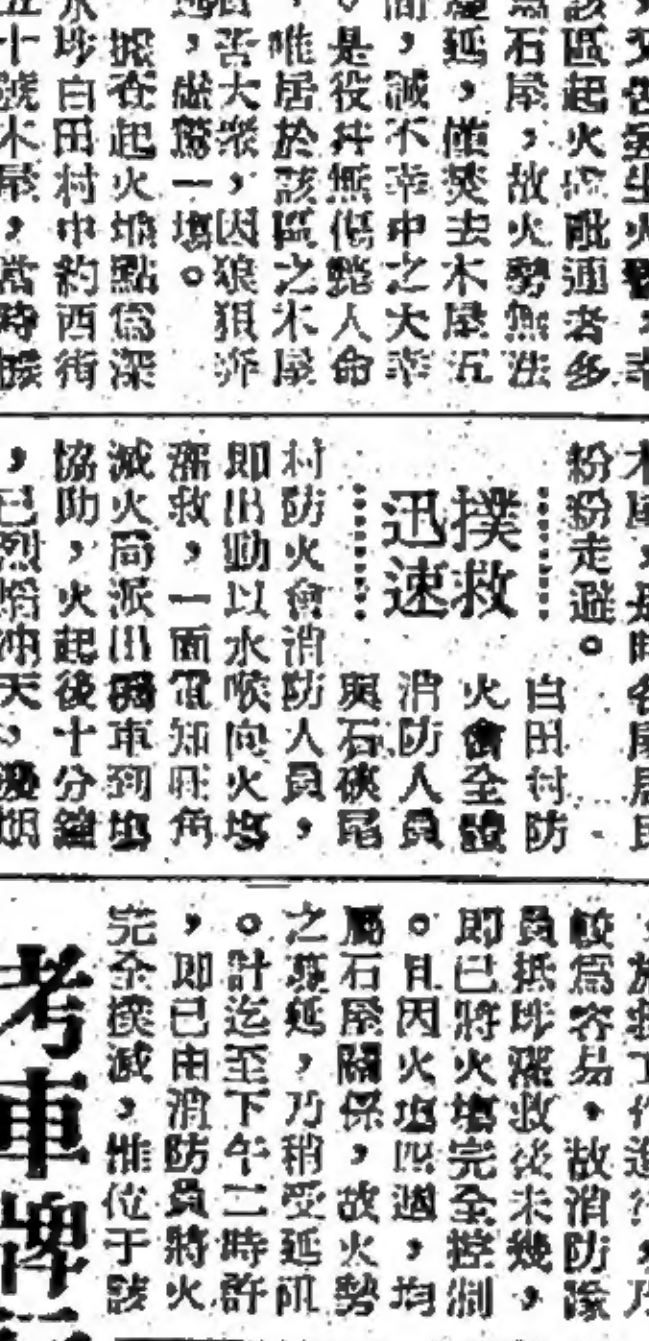 該區起火處毗連者多
為石屋,故火勢無法
蔓延,僅焚去木屋五
間,誠不幸中之大幸
。是役幷無傷斃人命
,唯居於該區之木屋
大眾,因狼狽奔
,虛驚一塲。
據查起火地點為深
水埗白田村中約西街
五十號木屋,當時
木屋,是時各屋居民
紛紛走避。
撲救
迅速
白田村防
火會全體
消防人員
與石硤尾
村防火會消防人員,
即出動以水喉向火塲
灌救,一面電知旺角
滅火局派出車到塲
協助,火起後十分鐘
,已烈焰冲天,
,施救工作進行,乃
較為容易,故消防隊
員抵埗灌救後未幾,
即已將火塲完全控制
。且因火塲四週,均
屬石屋關係,故火勢
之蔓延,乃稍受延阻
。計迄至下午二時許
,即已由消防員將火
完全撲滅,惟位于該
考車牌